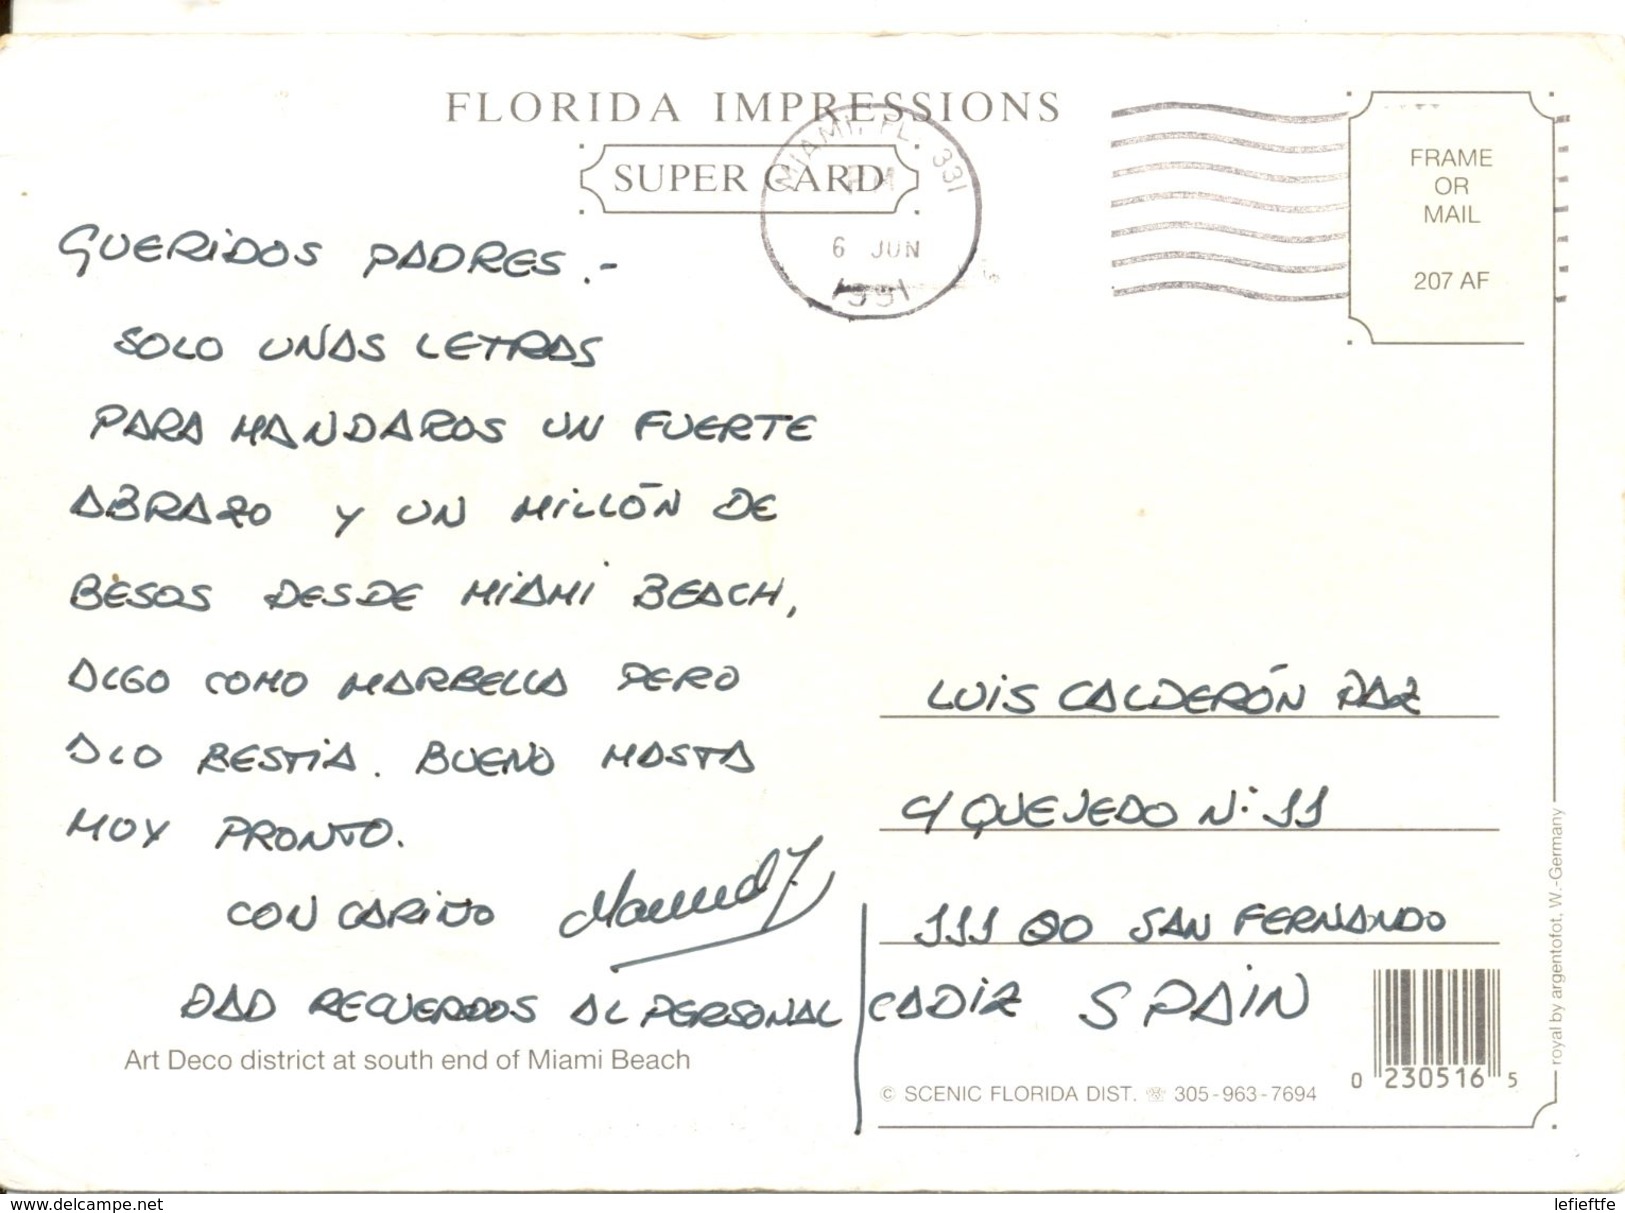 FLORIDA IMPRESSIONS
SUPER CARD
MIAMI, FL 331
PM
6 JUN
1991
FRAME
OR
MAIL
207 AF
QUERIDOS PADRES.-
SOLO UNAS LETRAS
PARA MANDAROS UN FUERTE
ABRAZO Y UN MILLÓN DE
BESOS DESDE MIAMI BEACH,
ALGO COMO MARBELLA PERO
A LO BESTIA. BUENO HASTA
MUY PRONTO.
CON CARIÑO
DAD RECUERDOS AL PERSONAL
Art Deco district at south end of Miami Beach
LUIS CALDERÓN PAZ
C/ QUEVEDO Nº 11
111 00 SAN FERNANDO
CADIZ SPAIN
© SCENIC FLORIDA DIST. ☏ 305-963-7694
0 230516 5
royal by argentofot, W.-Germany
www.delcampe.net
lefieftfe